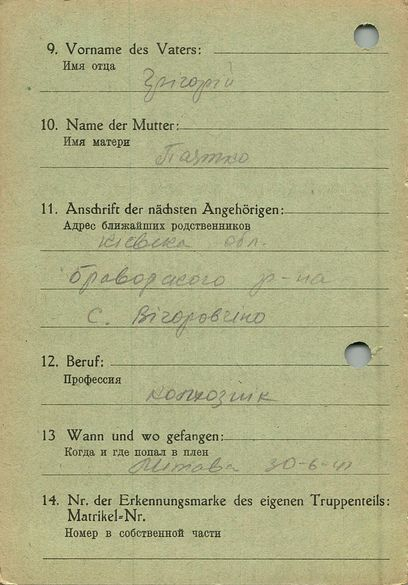 9. Vorname des Vaters:
Имя отца
Григорий
10. Name der Mutter:
Имя матери
Паятко
11. Anschrift der nächsten Angehörigen:
Адрес ближайших родственников
Кіевска обл.
р-на
с. Вігоровчіно
12. Beruf:
Профессия
колхозник
13 Wann und wo gefangen:
Когда и где попал в плен
Литава 30-6-41
14. Nr. der Erkennungsmarke des eigenen Truppenteils:
Matrikel=Nr.
Номер в собственной части